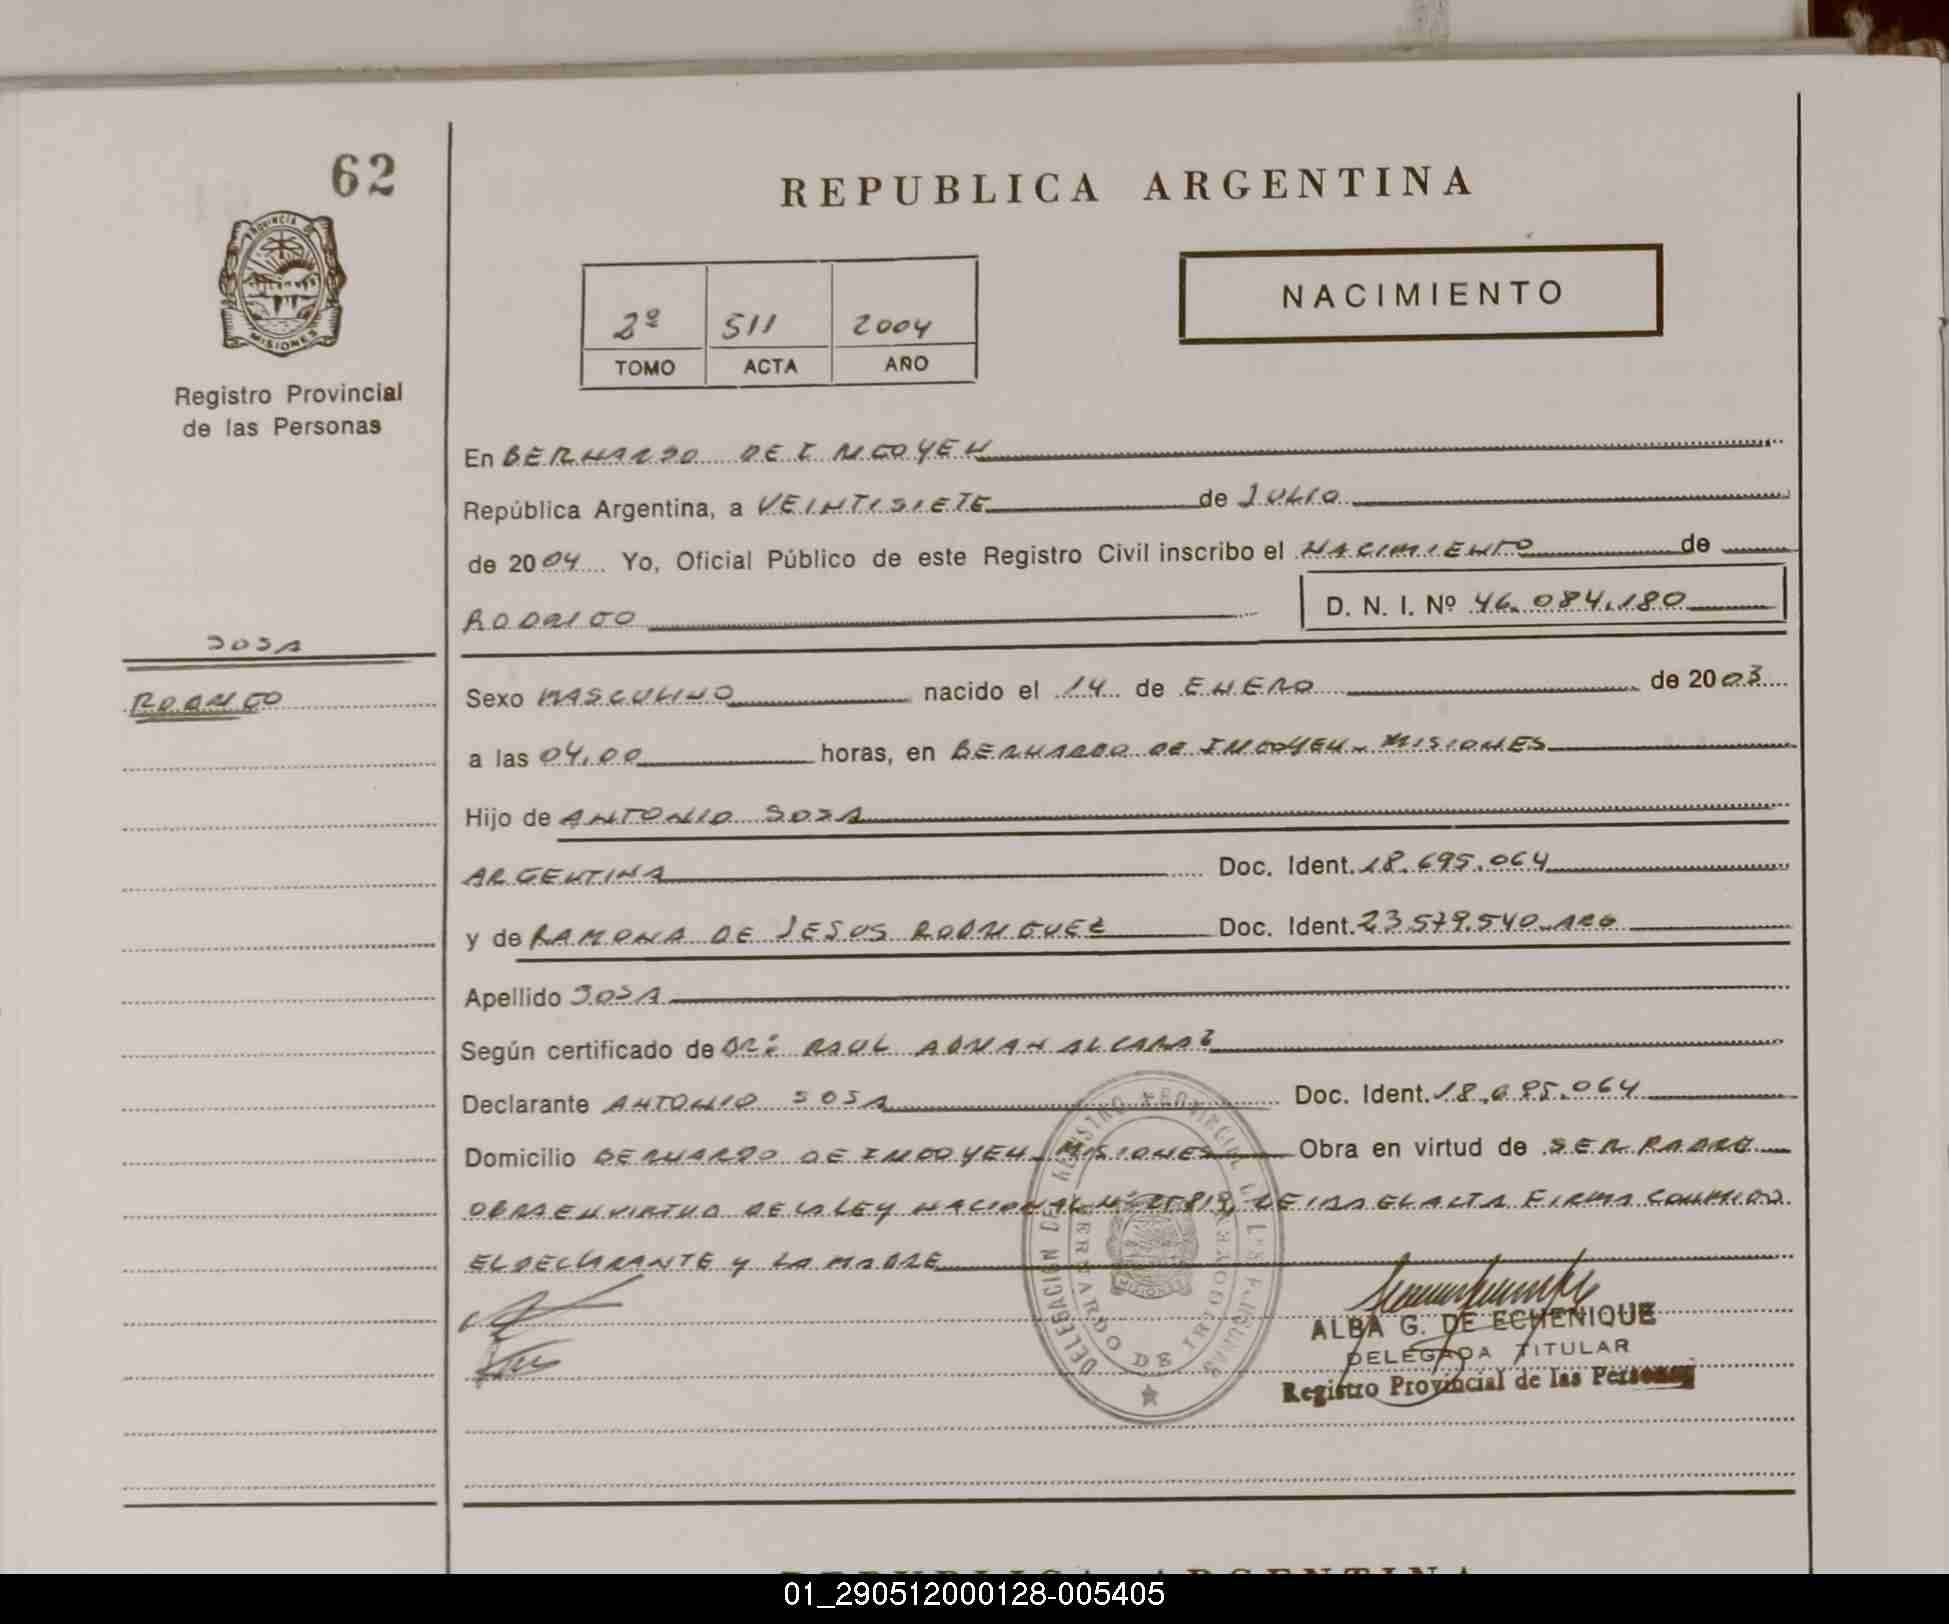 62
REPUBLICA ARGENTINA
PROVINCIA DE MISIONES
NACIMIENTO
2º 511 2004
TOMO ACTA AÑO
Registro Provincial
de las Personas
En BERNARDO DE IRIGOYEN
República Argentina, a VEINTISIETE de JULIO
de 2004 Yo, Oficial Público de este Registro Civil inscribo el NACIMIENTO de
RODRIGO D. N. I. Nº 46.084.180
SOSA
RODRIGO
Sexo MASCULINO nacido el 14 de ENERO de 2003
a las 04.00 horas, en BERNARDO DE IRIGOYEN - MISIONES
Hijo de ANTONIO SOSA
ARGENTINA Doc. Ident. 18.695.064
y de RAMONA DE JESUS RODRIGUEZ Doc. Ident. 23.579.540 - ARG
Apellido SOSA
Según certificado de DR: RAUL ADRIAN ALCARAZ
Declarante ANTONIO SOSA Doc. Ident. 18.695.064
Domicilio BERNARDO DE IRIGOYEN - MISIONES Obra en virtud de SER PADRE
OBRA EN VIRTUD DE LA LEY NACIONAL Nº 25819, LEIDA EL ACTA FIRMA CONMIGO
EL DECLARANTE Y LA MADRE
DELEGACION DEL REGISTRO PROVINCIAL DE LAS PERSONAS
BERNARDO DE IRIGOYEN
MISIONES
ALBA G. DE ECHENIQUE
DELEGADA TITULAR
Registro Provincial de las Personas
REPUBLICA ARGENTINA
01_290512000128-005405